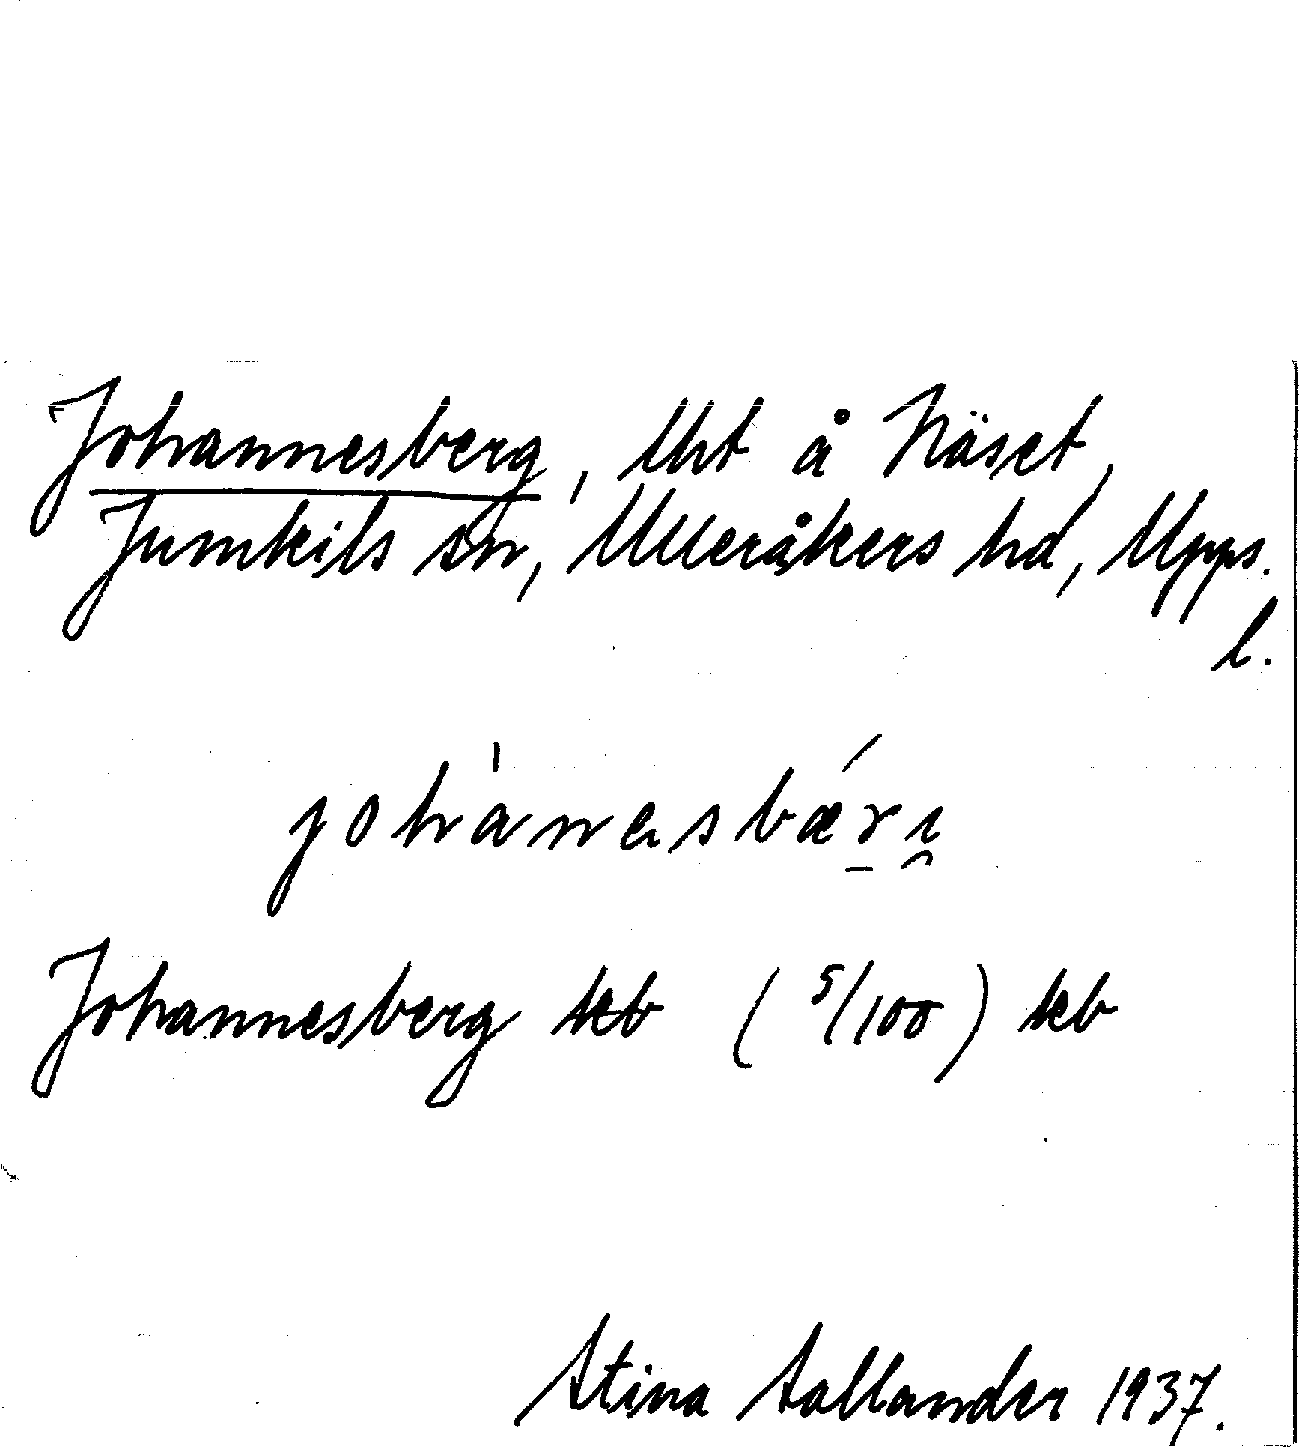 Johannesberg, Uht å Näset,
Jumkils sn, Ulleråkers hd, Upps.
l.
Johannesberg skb (5/100) skb
Stina Sallander 1937.